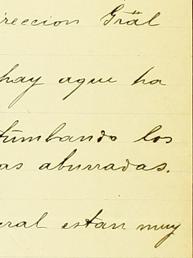 ireccion Gräl
hay aque ha
tumbando los
as aburradas.
eral estan muy